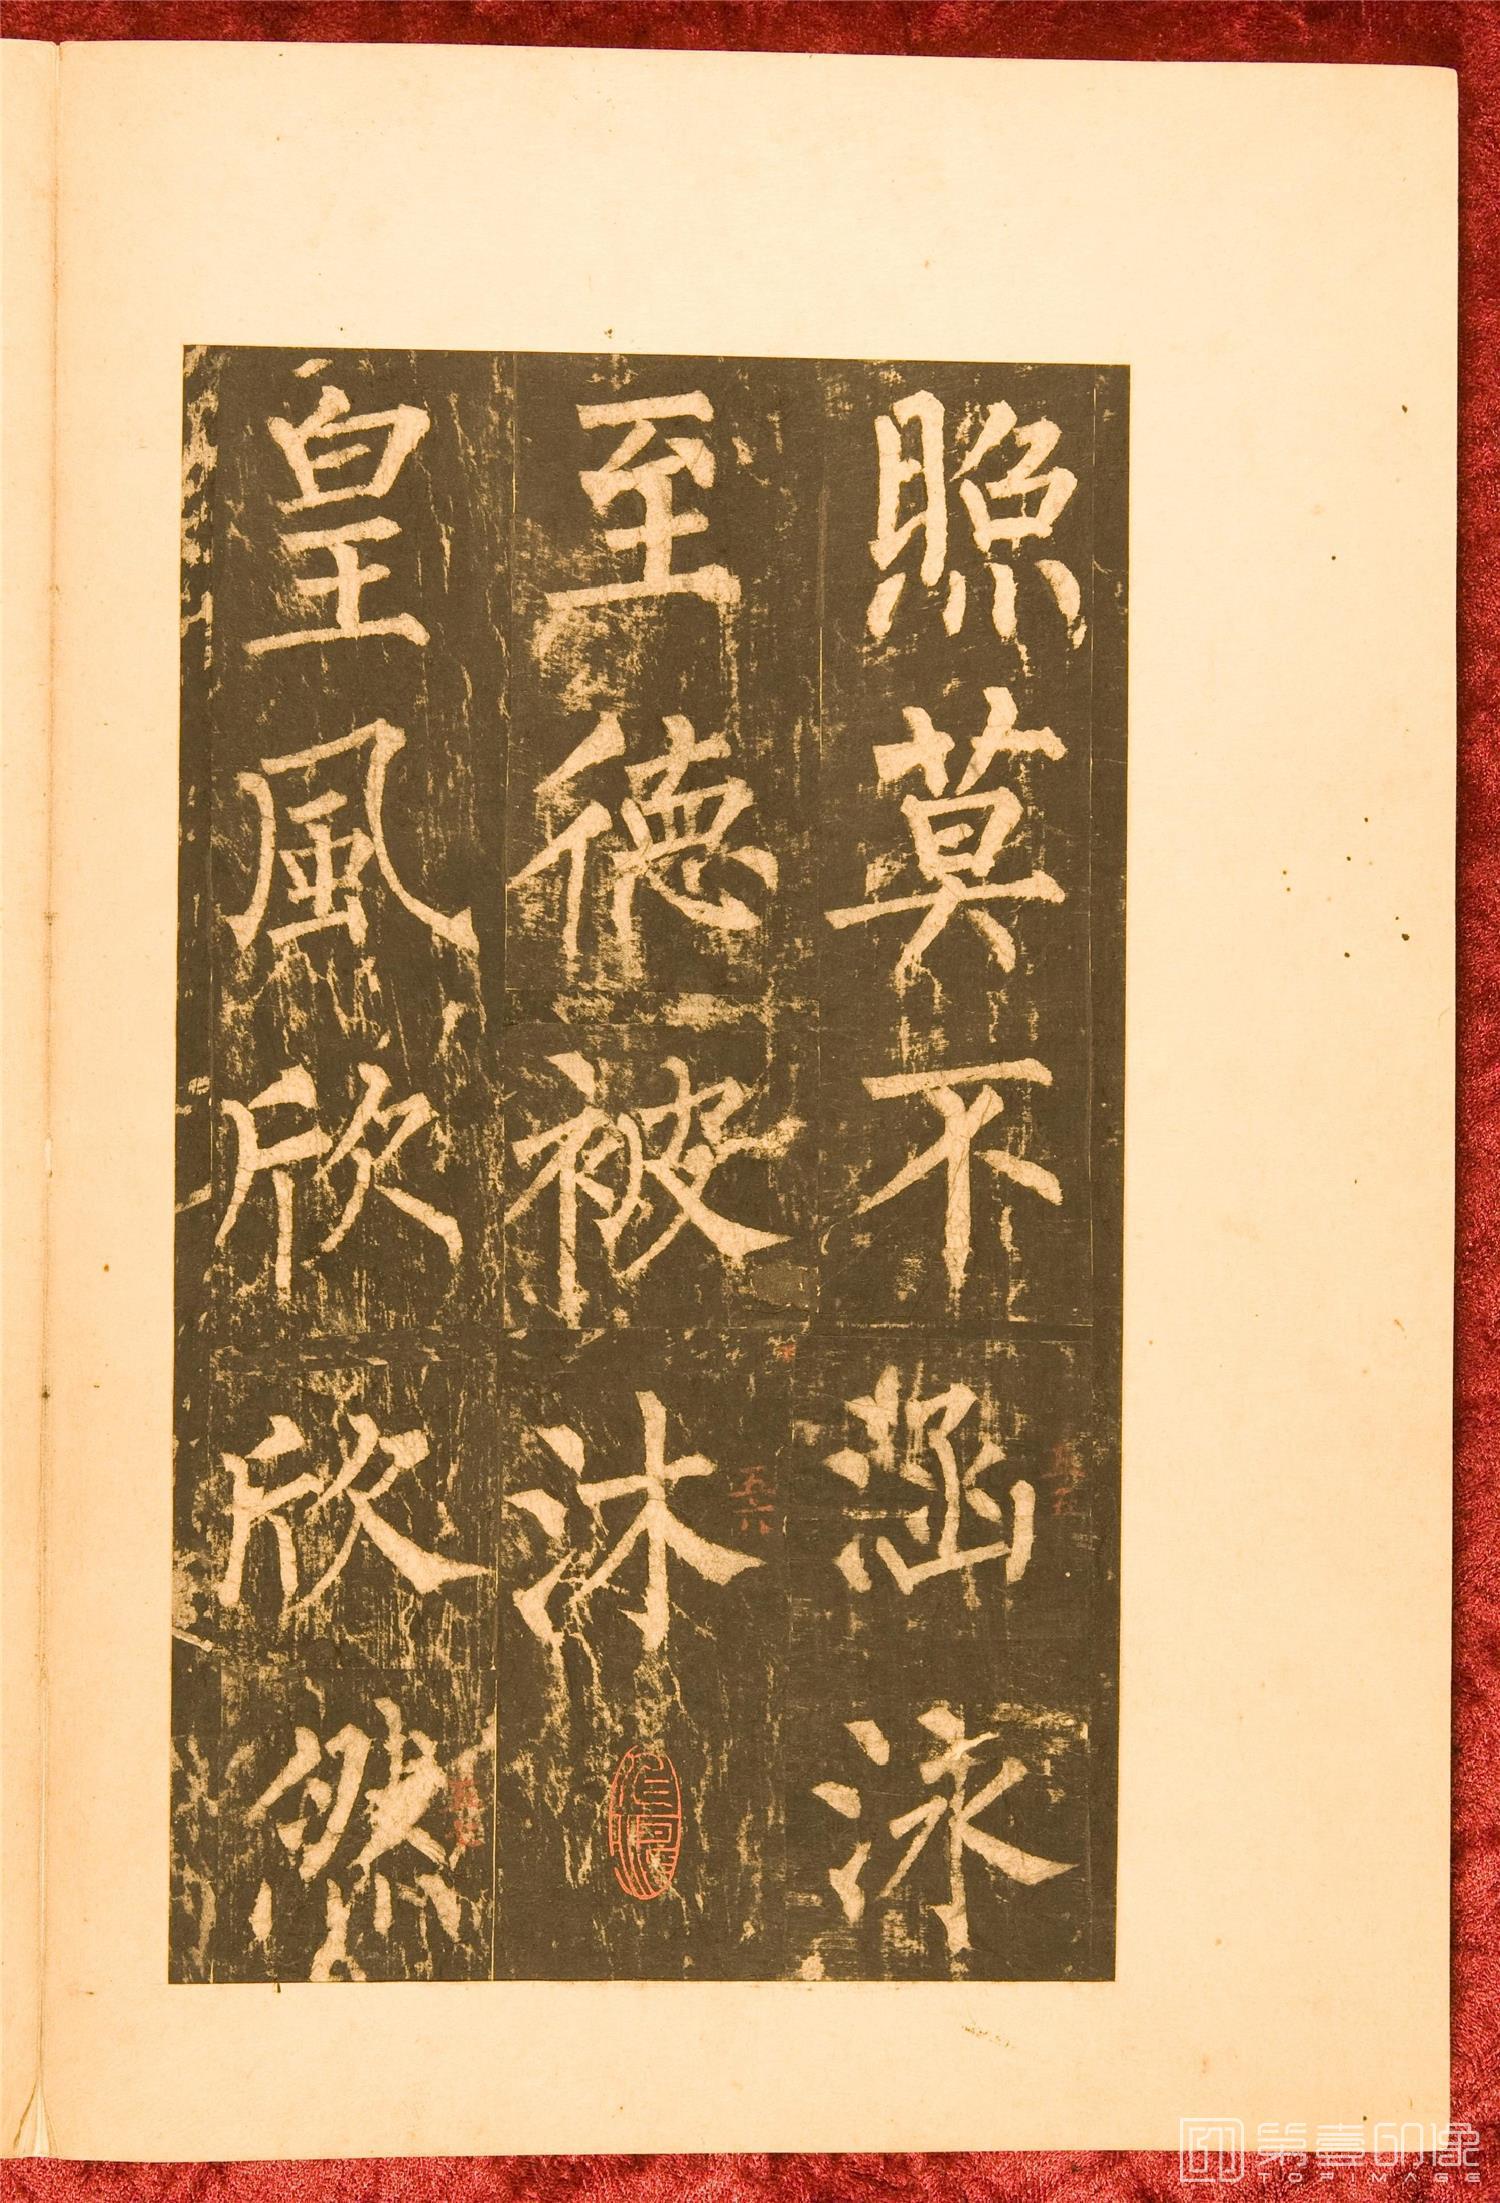 照莫不涵泳
至德被沐
皇風欣欣然
五六
第壹印像
TOPIMAGE